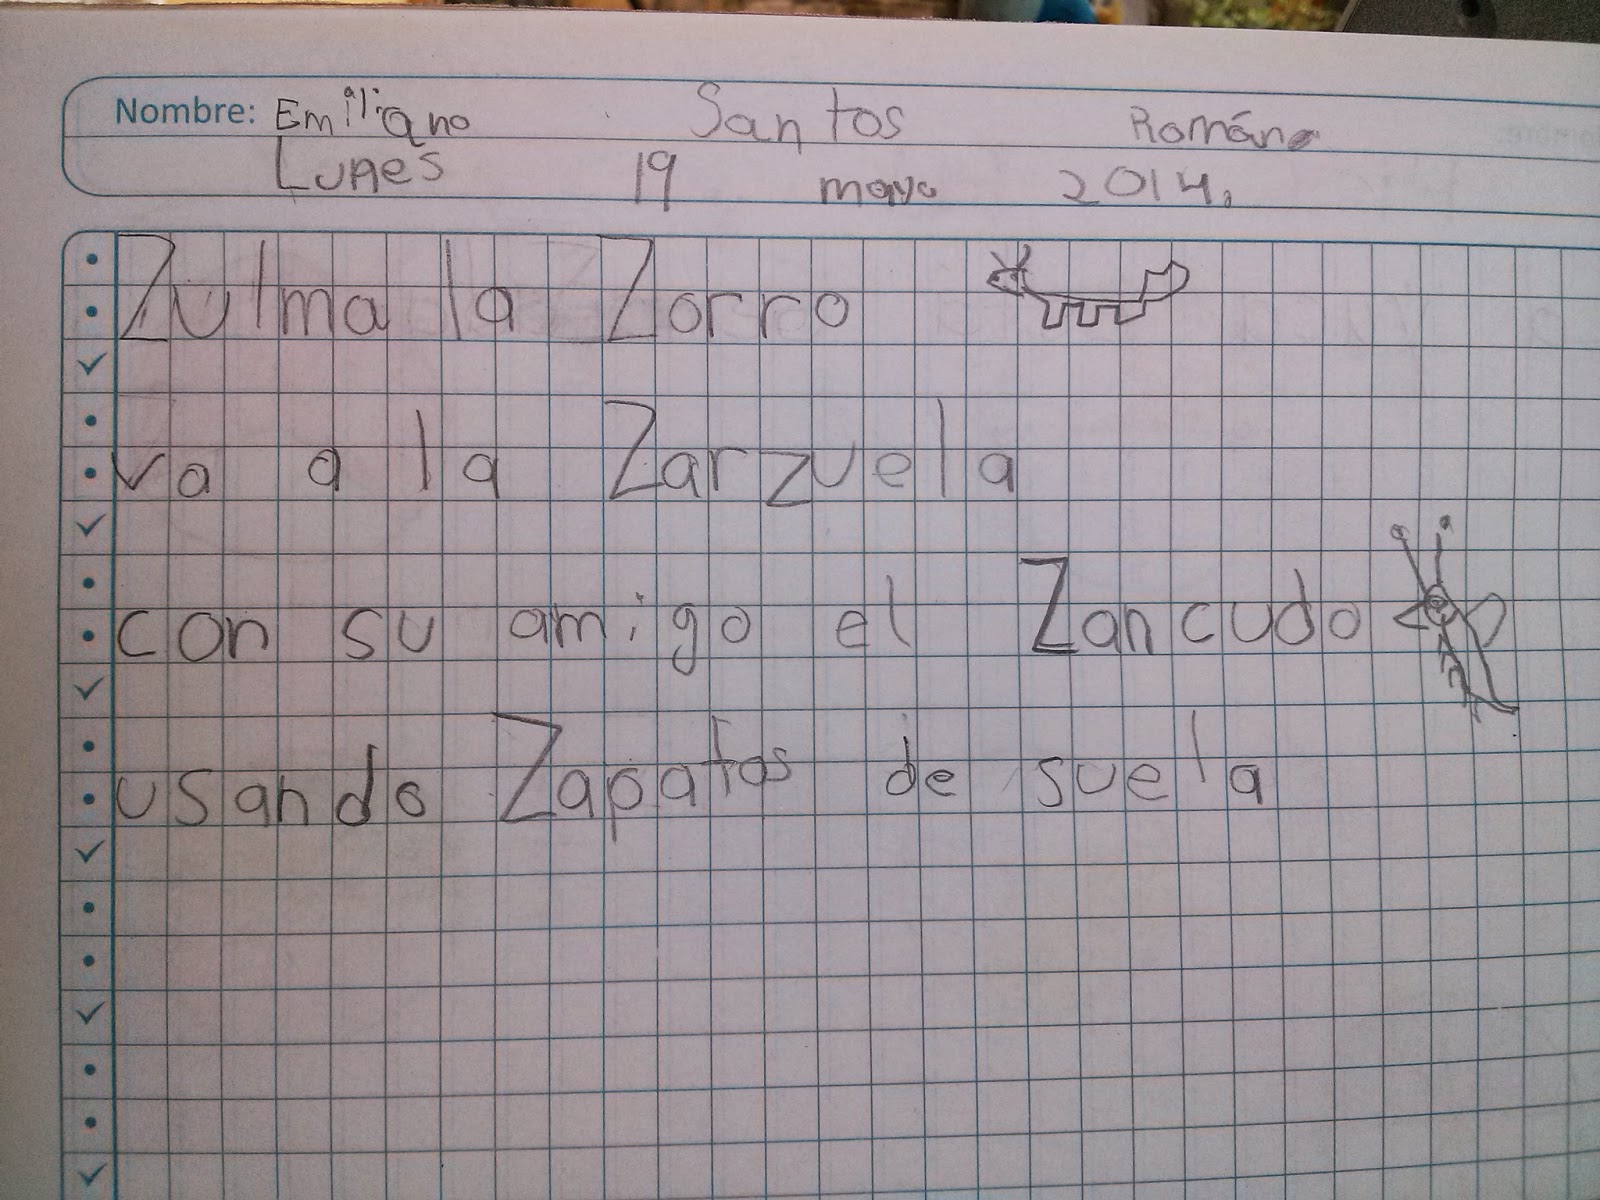 Nombre: Emiliano Santos Román
Lunes 19 mayo 2014.
Zulma la Zorro
va a la Zarzuela
con su amigo el Zancudo
usando Zapatos de suela